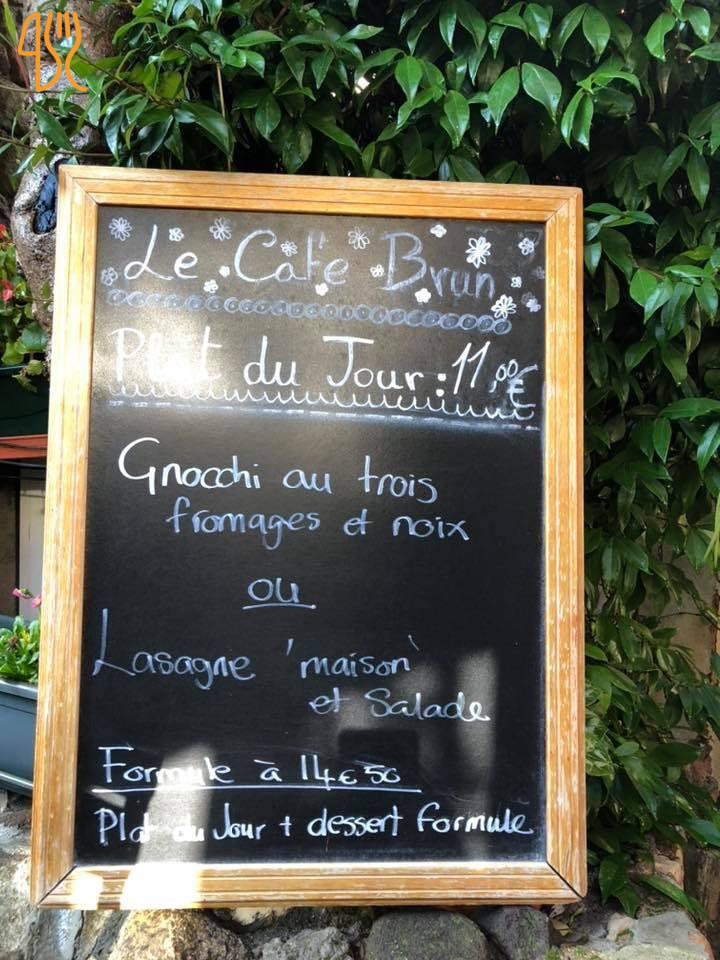 Le Café Brun
Plat du Jour : 11,00€
Gnocchi au trois
fromages et noix
ou
Lasagne 'maison'
et Salade
Formule à 14€50
Plat du Jour + dessert formule